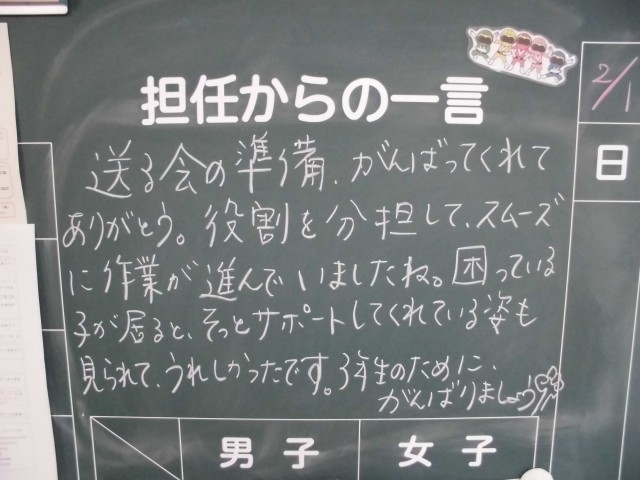 担任からの一言
2/1
日
送る会の準備、がんばってくれて
ありがとう。役割を分担して、スムーズ
に作業が進んでいましたね。困っている
子が居ると、そっとサポートしてくれている姿も
見られて、うれしかったです。3年生のために、
がんばりましょう
男子
女子